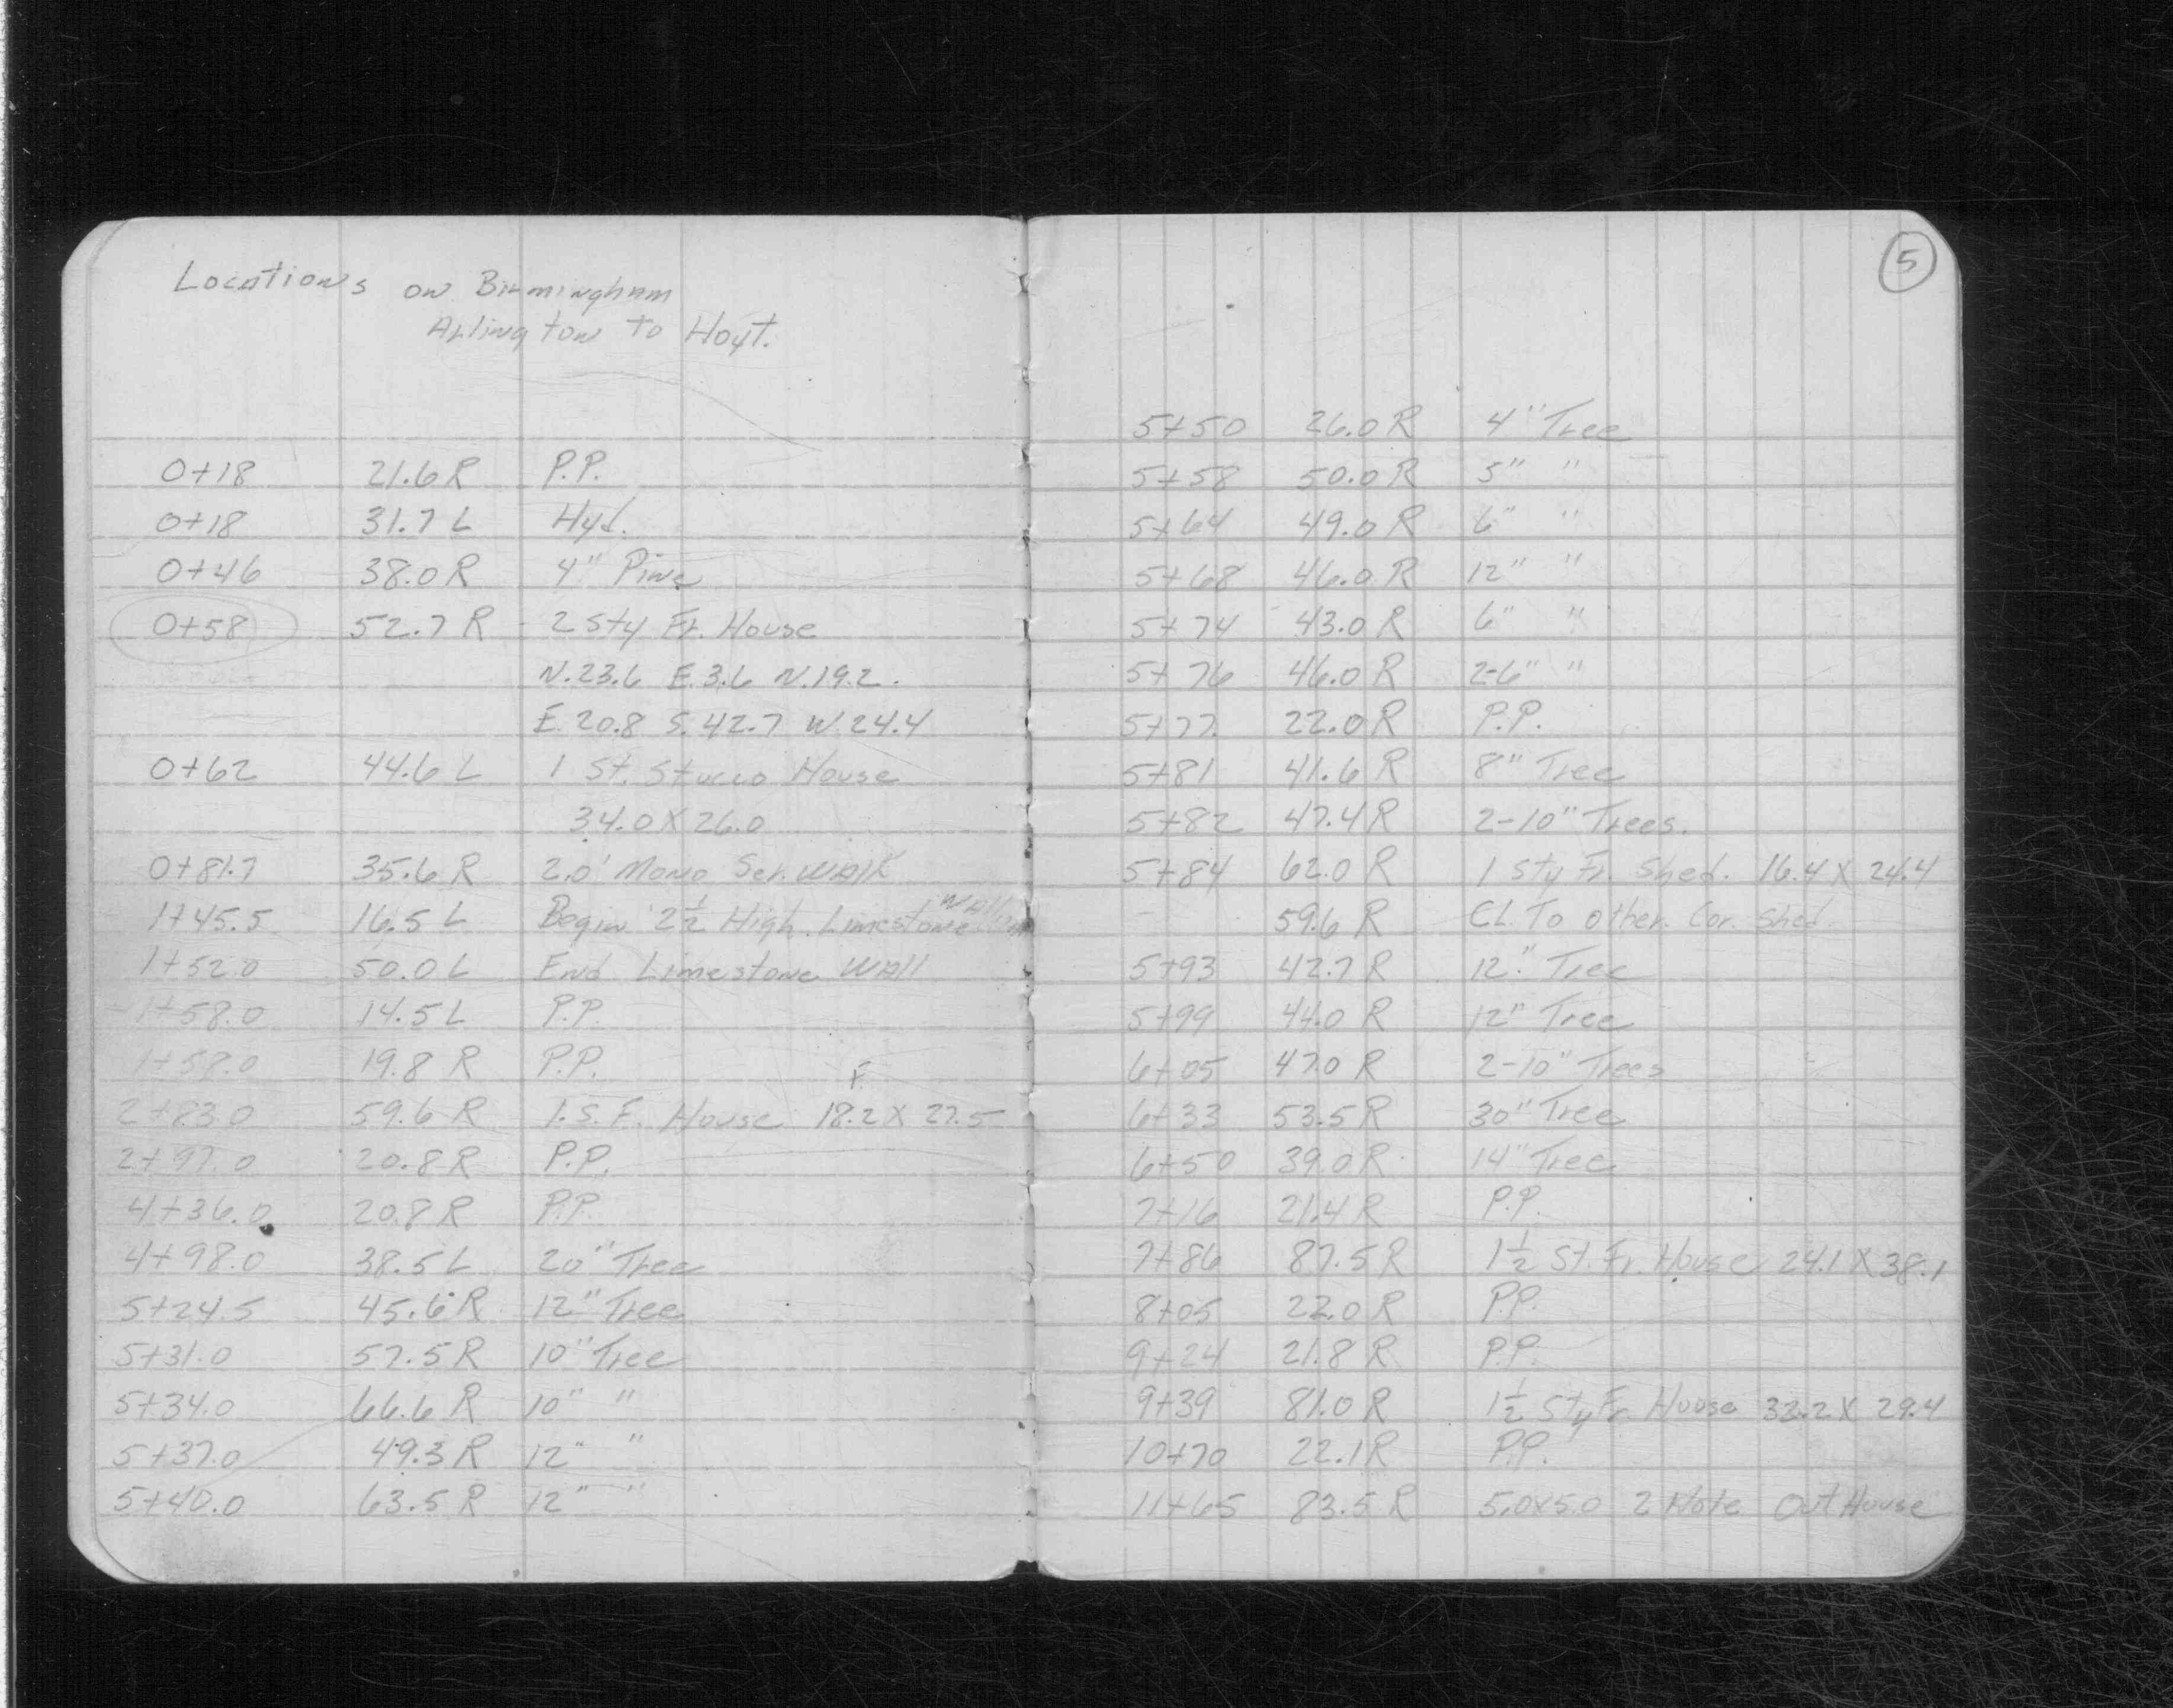 Locations on Birmingham
Arlington to Hoyt.
0+18 21.6 R P.P.
0+18 31.7 L Hyd.
0+46 38.0 R 4" Pine
0+58 52.7 R 2 Sty Fr. House
N.23.6 E.3.6 N.19.2.
E.20.8 S.42.7 W.24.4
0+62 44.6 L 1 St. Stucco House
34.0 X 26.0
0+81.7 35.6 R 2.0' Mono Ser. Walk
1+45.5 16.5 L Begin 2 1/2 High Limestone Wall
1+52.0 50.0 L End Limestone Wall
1+58.0 14.5 L P.P.
1+58.0 19.8 R P.P.
F.
2+83.0 59.6 R 1.S.F. House 18.2 X 27.5
2+97.0 20.8 R P.P.
4+36.0 20.8 R P.P.
4+98.0 38.5 L 20" Tree
5+24.5 45.6 R 12" Tree
5+31.0 57.5 R 10" Tree
5+34.0 66.6 R 10" "
5+37.0 49.3 R 12" "
5+40.0 63.5 R 12" "
5
5+50 26.0 R 4" Tree
5+58 50.0 R 5" "
5+64 49.0 R 6" "
5+68 46.0 R 12" "
5+74 43.0 R 6" "
5+76 46.0 R 2-6" "
5+77 22.0 R P.P.
5+81 41.6 R 8" Tree
5+82 47.4 R 2-10" Trees.
5+84 62.0 R 1 Sty Fr. Shed. 16.4 X 24.4
59.6 R CL. To other. Cor. Shed.
5+93 42.7 R 12" Tree
5+99 44.0 R 12" Tree
6+05 47.0 R 2-10" Trees
6+33 53.5 R 30" Tree
6+50 39.0 R 14" Tree
7+16 21.4 R P.P.
7+86 87.5 R 1 1/2 St. Fr. House 24.1 X 38.1
8+05 22.0 R P.P.
9+24 21.8 R P.P.
9+39 81.0 R 1 1/2 Sty Fr. House 32.2 X 29.4
10+70 22.1 R P.P.
11+65 83.5 R 5.0x5.0 2 Hole Out House